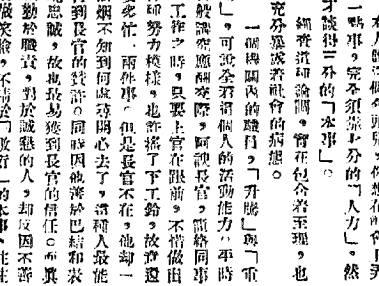 一點事,完全須靠七分的「人力」,然
才談得三分的「本事」。
細查這句論調,實在包含着至理,也
充分暴露着社會的病態。
一個機關內的職員,「升騰」與「重
」,可說全看這個人的活動能力。平時
般講究應酬交際,阿諛長官,聯絡同事
工作之時,只要上官在跟前,不惜做出
却努力模樣,也許搖了下工鈴,故意還
死忙一兩件事。但是長官不在,他却一
烟不知到何處尋開心去了,這種人最能
得到長官的贊許。同時因他善於巴結和表
忠誠,故也最易獲到長官的信任。而眞
勤於職責,對於誠懇的人,却反因不善
做笑臉,不精於「敷衍」的本事,往往